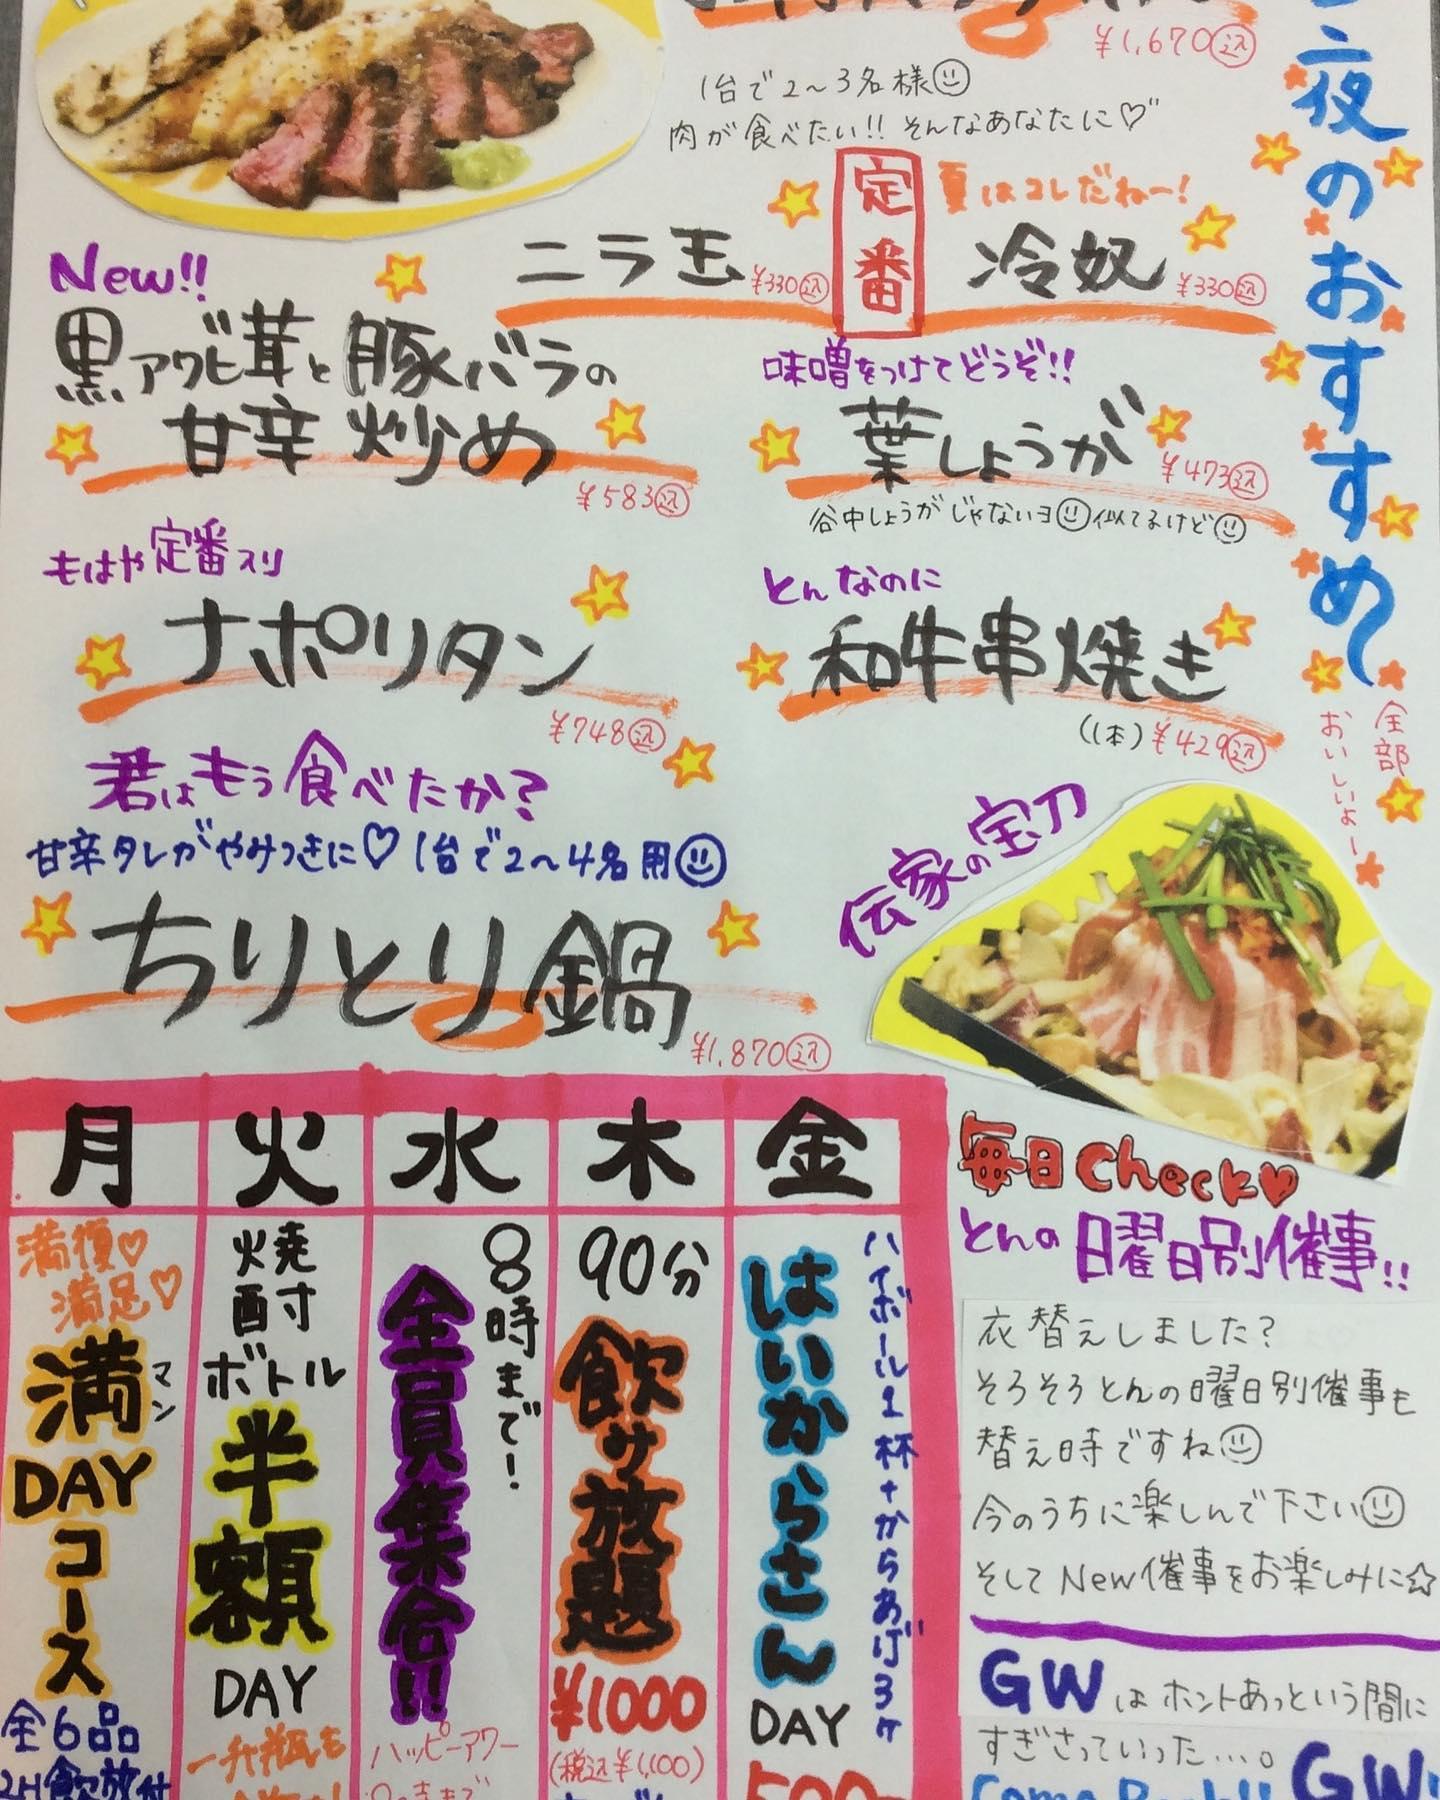 ¥1,670込
1台で2～3名様
肉が食べたい!! そんなあなたに♡
夜のおすすめ
全部
おいしいよー
定番
夏はコレだねー!
ニラ玉 ¥330込
冷奴 ¥330込
New!!
黒アワビ茸と豚バラの
甘辛炒め
¥583込
味噌をつけてどうぞ!!
葉しょうが ¥473込
谷中しょうがじゃないヨ 似てるけど
もはや定番入り
ナポリタン
¥748込
とんなのに
和牛串焼き
(1本) ¥429込
君はもう食べたか?
甘辛タレがやみつきに♡ 1台で2～4名用
ちりとり鍋
¥1,870込
伝家の宝刀
月
満復♡
満足♡
満マン
DAY
コース
全6品
2H飲放付
火
焼酎
ボトル
半額
DAY
一升瓶も
水
8時まで!
全員集合!!
ハッピーアワー
木
90分
飲み放題
¥1000
(税込¥1,100)
金
ハイボール1杯+からあげ3ヶ
はいからさん
DAY
500
毎日Check♡
とんの曜日別催事!!
衣替えしました?
そろそろとんの曜日別催事も
替え時ですね
今のうちに楽しんで下さい
そしてNew催事をお楽しみに☆
GWはホントあっという間に
すぎさっていった….。
Come Back!! GW!